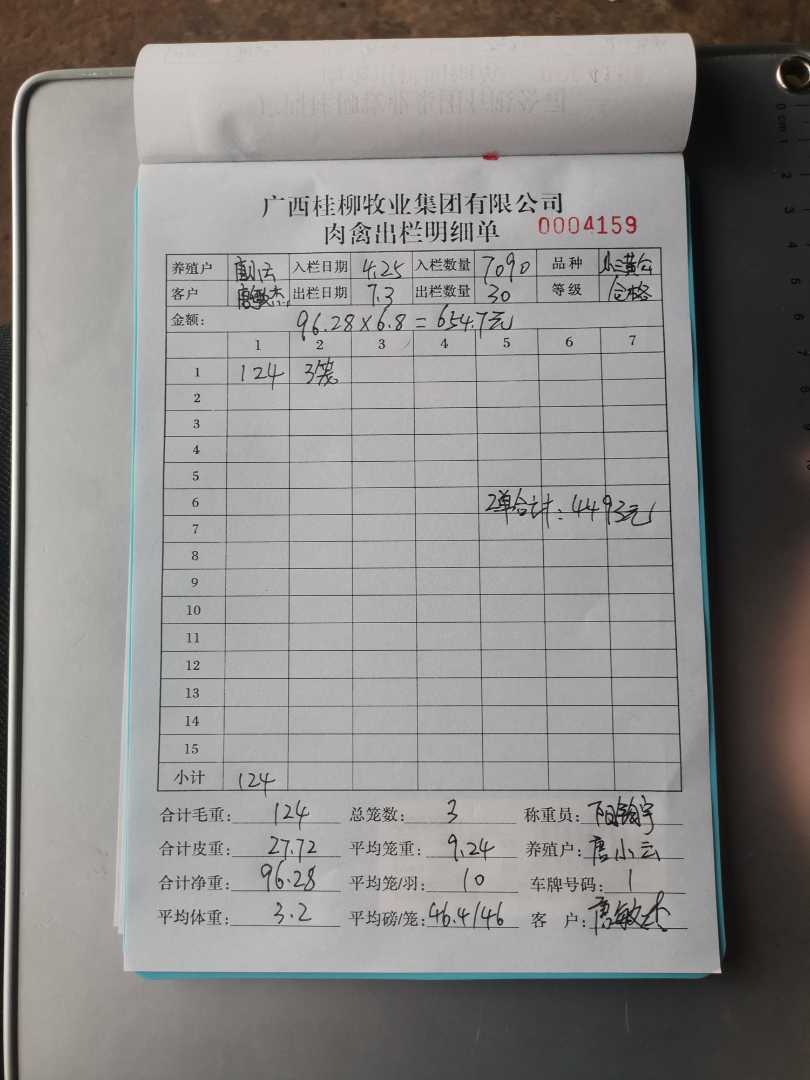 广西桂柳牧业集团有限公司
肉禽出栏明细单 0004159
养殖户 唐小云 入栏日期 4.25 入栏数量 7090 品种
客户 唐敏杰 出栏日期 7.3 出栏数量 30 等级 合格
金额: 96.28×6.8=654.7元
1 2 3 4 5 6 7
1 124 3笼
2
3
4
5
6 2单合计:4493元
7
8
9
10
11
12
13
14
15
小计 124
合计毛重: 124 总笼数: 3 称重员:
合计皮重: 27.72 平均笼重: 9.24 养殖户: 唐小云
合计净重: 96.28 平均笼/羽: 10 车牌号码: 1
平均体重: 3.2 平均磅/笼: 46.4/46 客 户: 唐敏杰
0 cm 1 2 3 4 5 6 7 8 9